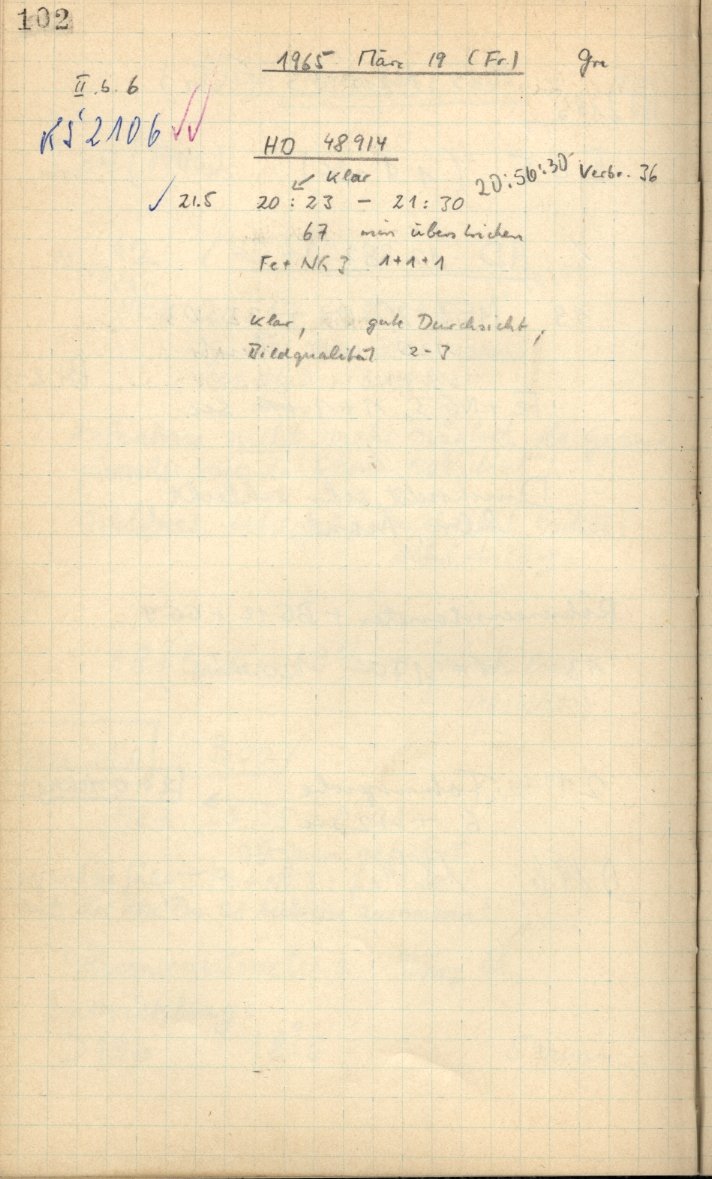 102
1965 März 19 (Fr.) Gre
II.b.6
KS 2106
HD 48914
klar
21.5 20:23 - 21:30 20:56:30 Verbr. 36
67 min überstrichen
Fe+NK3 1+1+1
klar, gute Durchsicht,
Bildqualität 2-3